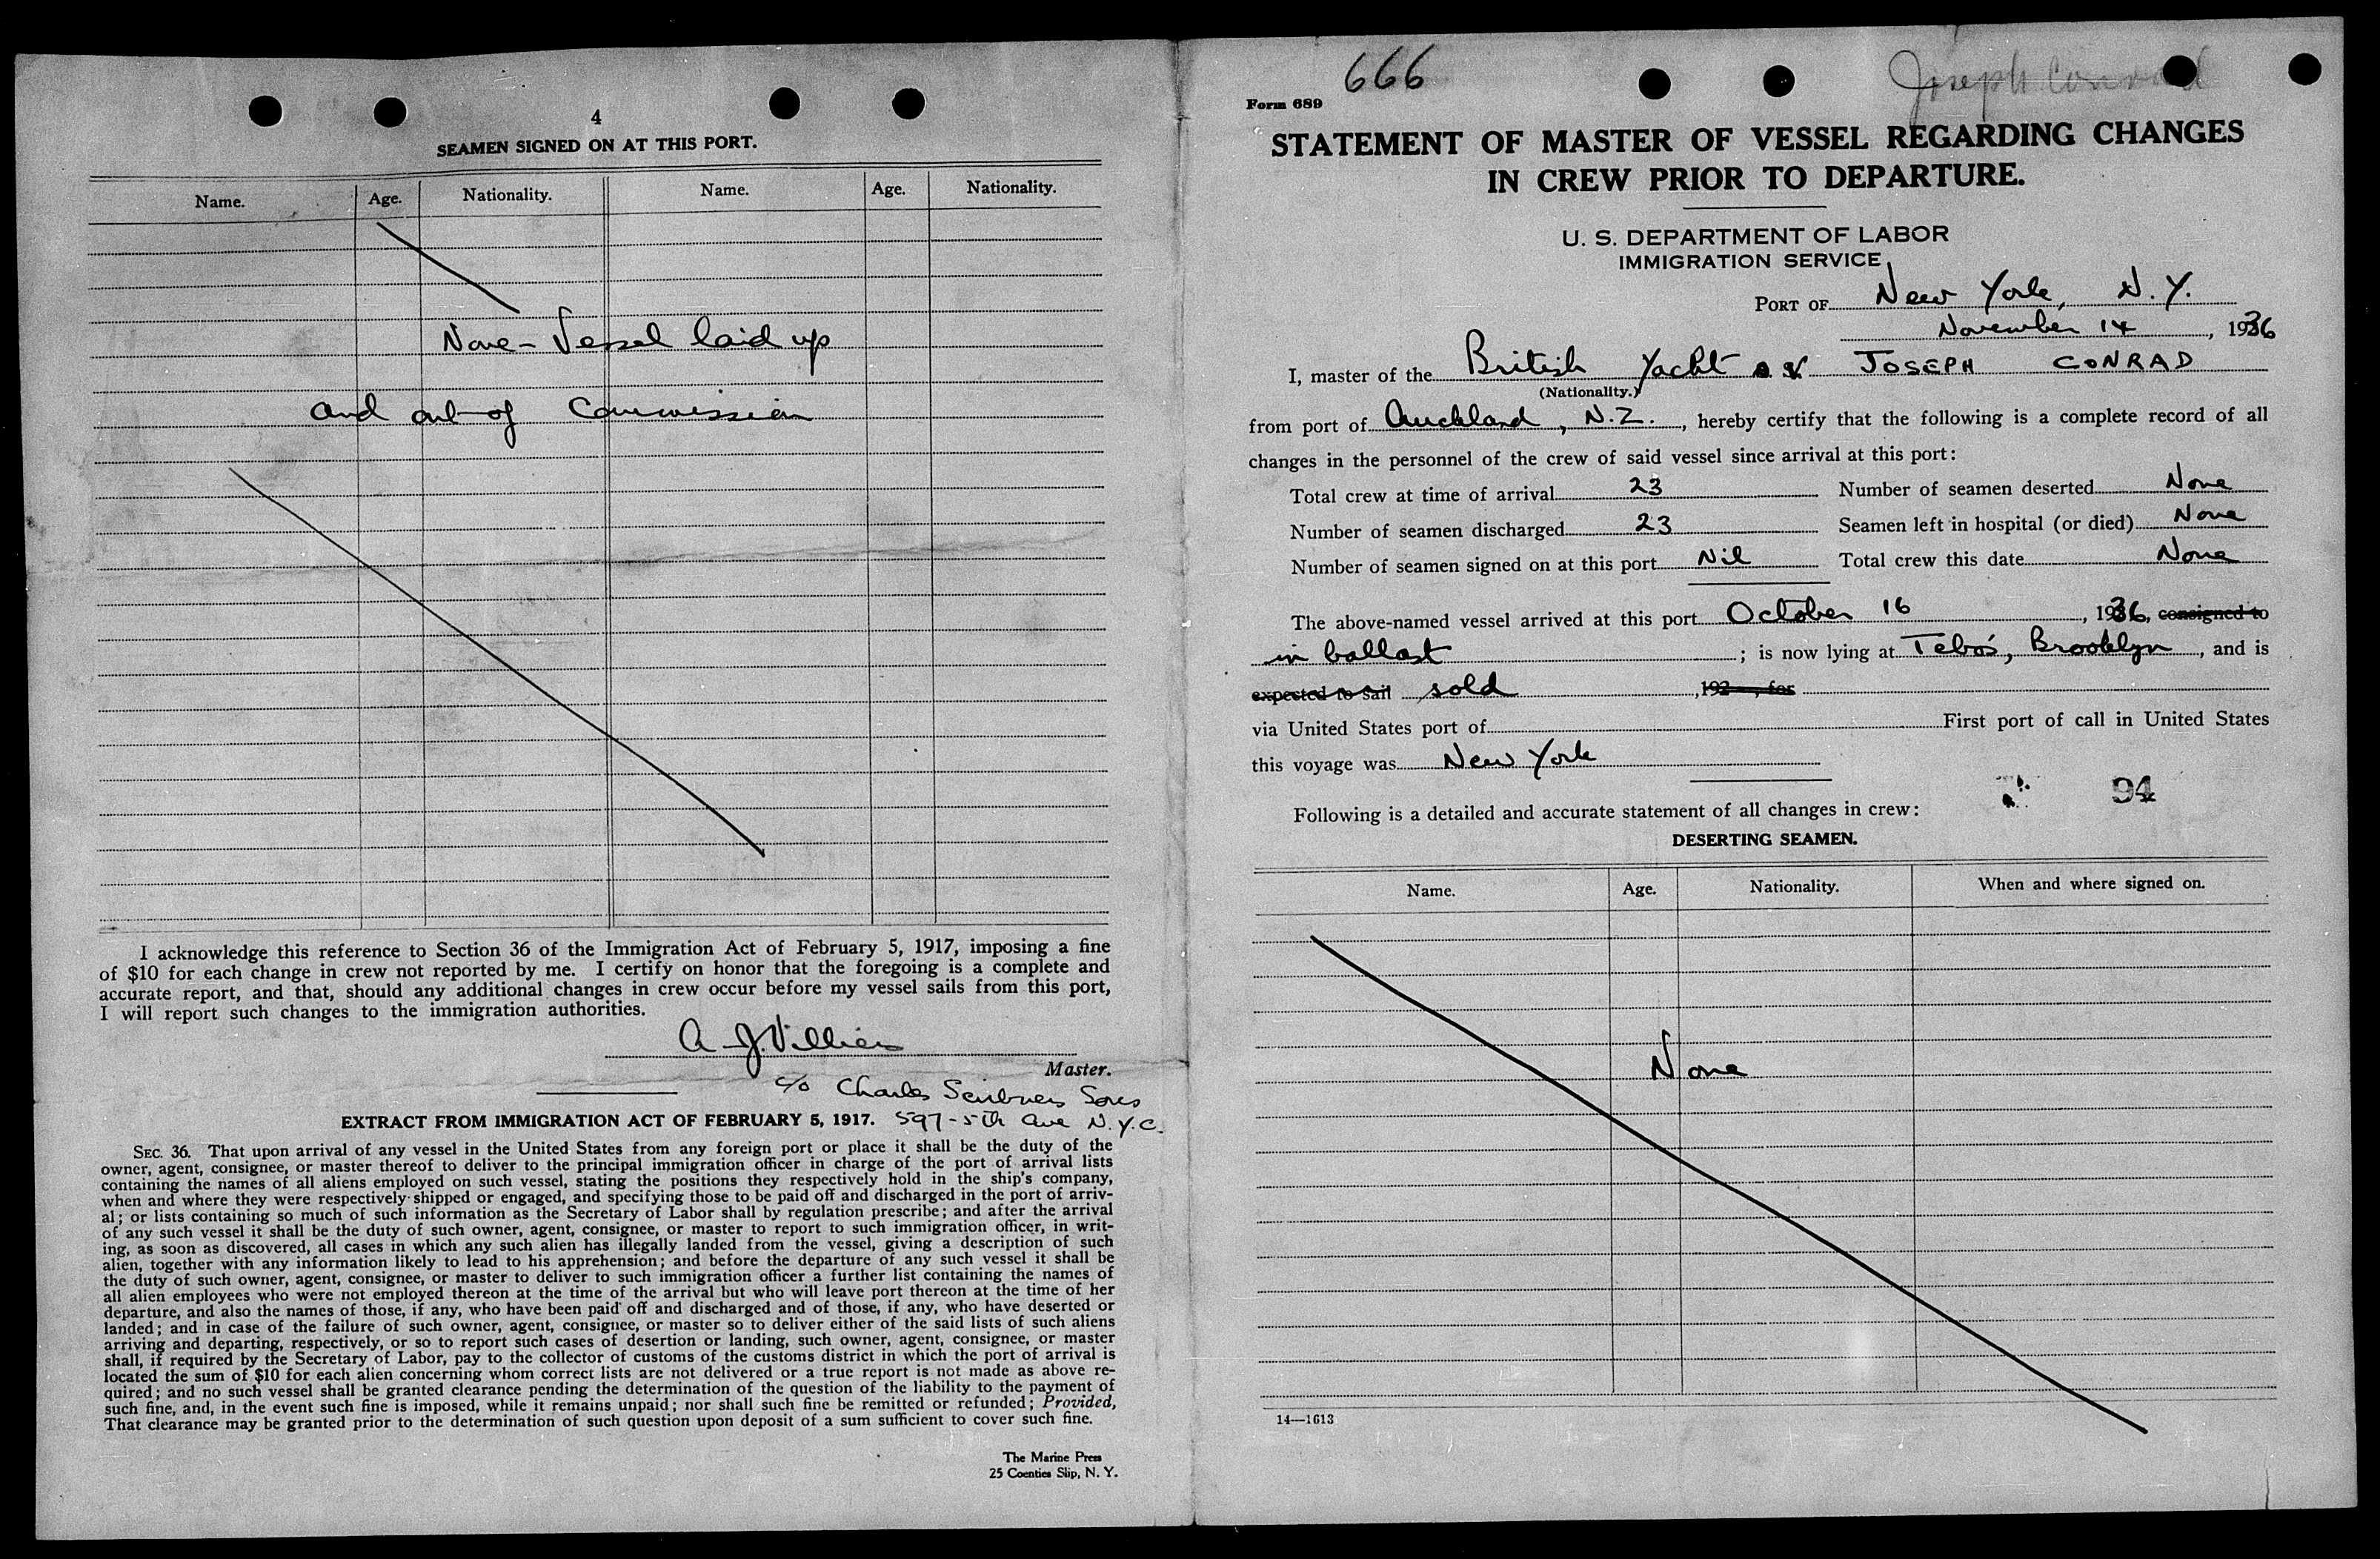 4
SEAMEN SIGNED ON AT THIS PORT.
Name. Age. Nationality. Name. Age. Nationality.
None - Vessel laid up
and out of Commission
I acknowledge this reference to Section 36 of the Immigration Act of February 5, 1917, imposing a fine
of $10 for each change in crew not reported by me. I certify on honor that the foregoing is a complete and
accurate report, and that, should any additional changes in crew occur before my vessel sails from this port,
I will report such changes to the immigration authorities.
A J. Villiers
Master.
c/o Charles Scribners Sons
EXTRACT FROM IMMIGRATION ACT OF FEBRUARY 5, 1917. 597 - 5th Ave N.Y.C.
SEC. 36. That upon arrival of any vessel in the United States from any foreign port or place it shall be the duty of the
owner, agent, consignee, or master thereof to deliver to the principal immigration officer in charge of the port of arrival lists
containing the names of all aliens employed on such vessel, stating the positions they respectively hold in the ship's company,
when and where they were respectively shipped or engaged, and specifying those to be paid off and discharged in the port of arriv-
al; or lists containing so much of such information as the Secretary of Labor shall by regulation prescribe; and after the arrival
of any such vessel it shall be the duty of such owner, agent, consignee, or master to report to such immigration officer, in writ-
ing, as soon as discovered, all cases in which any such alien has illegally landed from the vessel, giving a description of such
alien, together with any information likely to lead to his apprehension; and before the departure of any such vessel it shall be
the duty of such owner, agent, consignee, or master to deliver to such immigration officer a further list containing the names of
all alien employees who were not employed thereon at the time of the arrival but who will leave port thereon at the time of her
departure, and also the names of those, if any, who have been paid off and discharged and of those, if any, who have deserted or
landed; and in case of the failure of such owner, agent, consignee, or master so to deliver either of the said lists of such aliens
arriving and departing, respectively, or so to report such cases of desertion or landing, such owner, agent, consignee, or master
shall, if required by the Secretary of Labor, pay to the collector of customs of the customs district in which the port of arrival is
located the sum of $10 for each alien concerning whom correct lists are not delivered or a true report is not made as above re-
quired; and no such vessel shall be granted clearance pending the determination of the question of the liability to the payment of
such fine, and, in the event such fine is imposed, while it remains unpaid; nor shall such fine be remitted or refunded; Provided,
That clearance may be granted prior to the determination of such question upon deposit of a sum sufficient to cover such fine.
The Marine Press
25 Coenties Slip, N. Y.
666
Joseph Conrad
Form 689
STATEMENT OF MASTER OF VESSEL REGARDING CHANGES
IN CREW PRIOR TO DEPARTURE.
U. S. DEPARTMENT OF LABOR
IMMIGRATION SERVICE
PORT OF New York, N.Y.
November 14, 1936
I, master of the British Yacht JOSEPH CONRAD
(Nationality.)
from port of Auckland, N.Z., hereby certify that the following is a complete record of all
changes in the personnel of the crew of said vessel since arrival at this port:
Total crew at time of arrival 23 Number of seamen deserted None
Number of seamen discharged 23 Seamen left in hospital (or died) None
Number of seamen signed on at this port Nil Total crew this date None
The above-named vessel arrived at this port October 16, 1936, consigned to
in ballast; is now lying at Tebo's, Brooklyn, and is
expected to sail sold, 192 , for
via United States port of First port of call in United States
this voyage was New York
94
Following is a detailed and accurate statement of all changes in crew:
DESERTING SEAMEN.
Name. Age. Nationality. When and where signed on.
None
14—1613